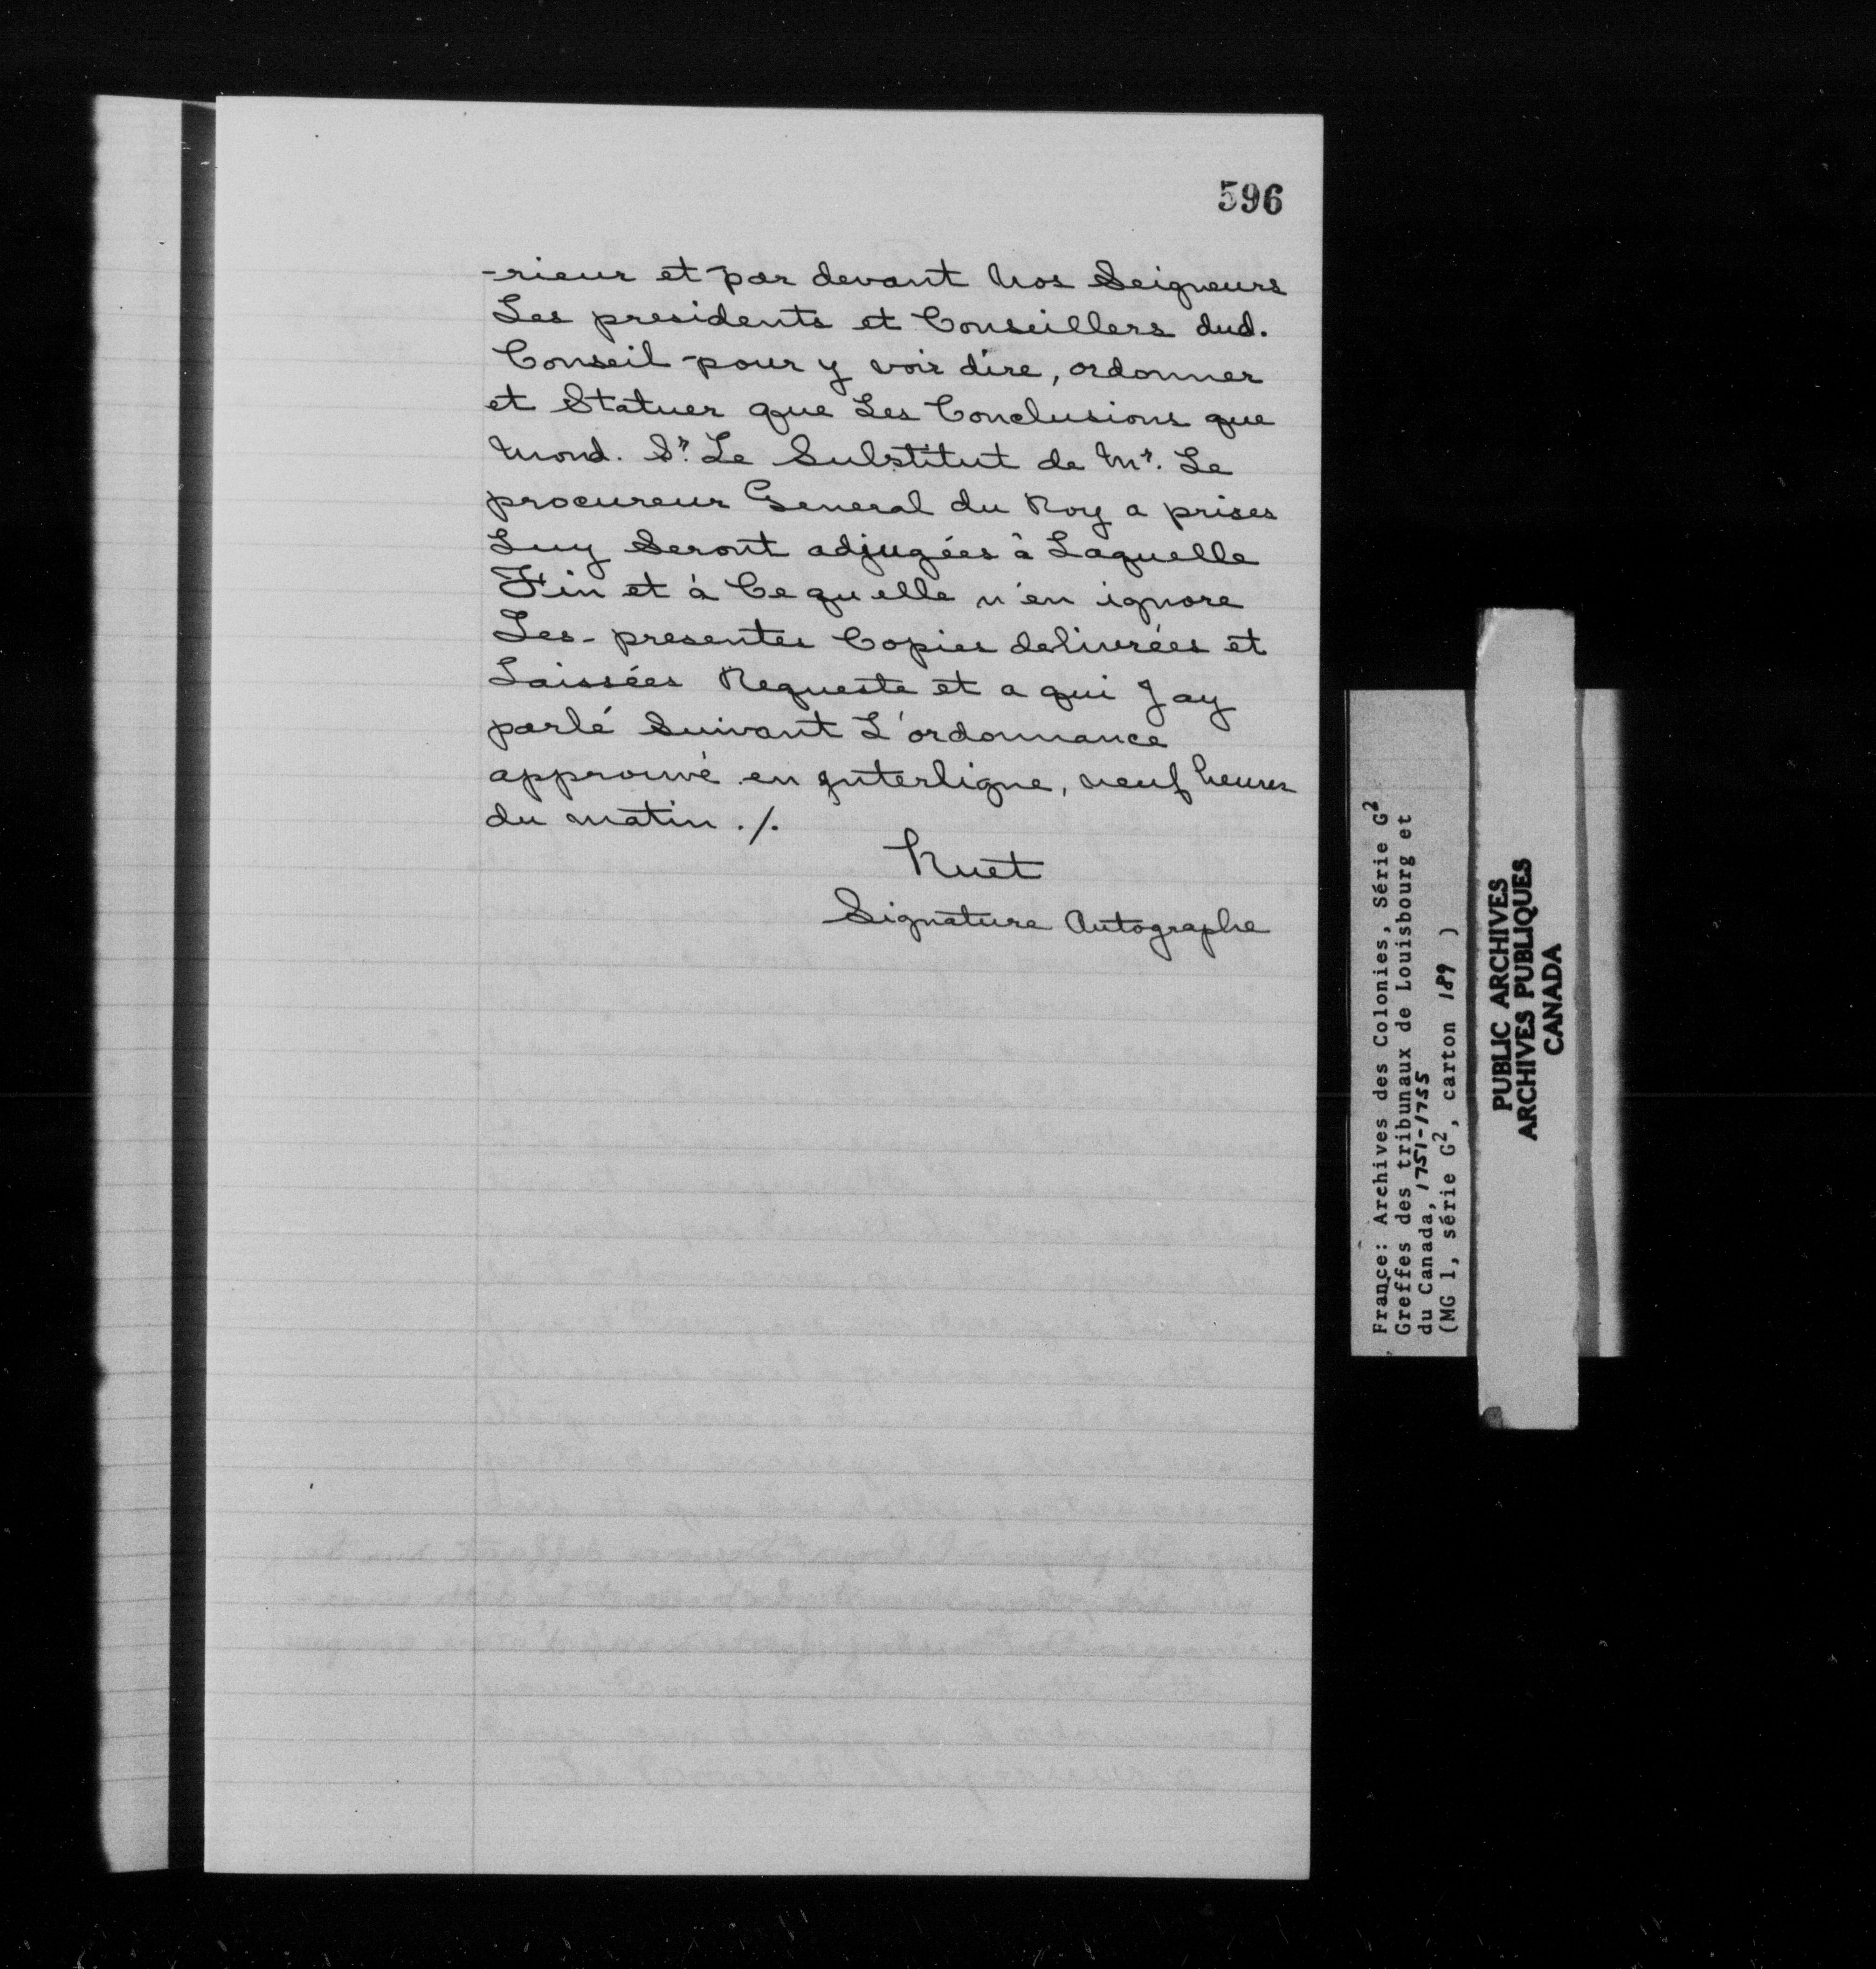 596
-rieur et par devant Nos Seigneurs
Les presidents et Conseillers dud.
Conseil pour y voir dire, ordonner
et Statuer que Les Conclusions que
Mond. Sr. Le Substitut de Mr. Le
procureur General du Roy a prises
Luy Seront adjugées à Laquelle
Fin et à Ce qu elle n'en ignore
Les presentes Copies delivrées et
Laissées Requeste et a qui Jay
parlé Suivant L'ordonnance
approuvé en Interligne, neuf heures
du matin ./.
Huet
Signature Autographe
France: Archives des Colonies, Série G2
Greffes des tribunaux de Louisbourg et
du Canada, 1751-1755
(MG 1, série G2, carton 189 )
PUBLIC ARCHIVES
ARCHIVES PUBLIQUES
CANADA